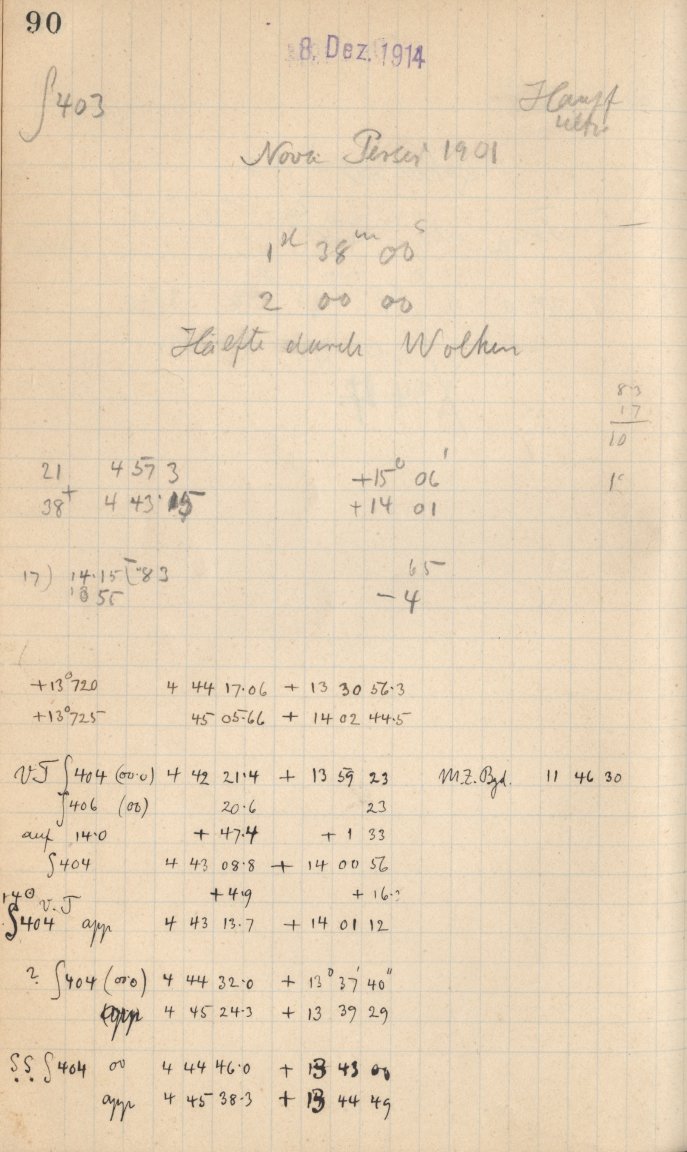 90
8. Dez. 1914
∫403
Nova Persei 1901
1 st 38 m 00 s
2 00 00
Hälfte durch Wolken
83
17
10
21 4 57 3 +15° 06'
38+ 4 43·15 +14 01
17) 14·15 83 65
- 4
+13°720 4 44 17·06 + 13 30 56·3
+13°725 45 05·66 + 14 02 44·5
VJ ∫404 (00·0) 4 42 21·4 + 13 59 23 M.Z. Bgd. 11 46 30
∫406 (00) 20·6 23
auf 14·0 + 47·4 + 1 33
∫404 4 43 08·8 + 14 00 56
+4·9 + 16·
V. J
∫404 app 4 43 13·7 + 14 01 12
? ∫404 (00·0) 4 44 32·0 + 13° 37' 40"
app 4 45 24·3 + 13 39 29
SS ∫404 00 4 44 46·0 + 13 43 00
app 4 45 38·3 + 13 44 49